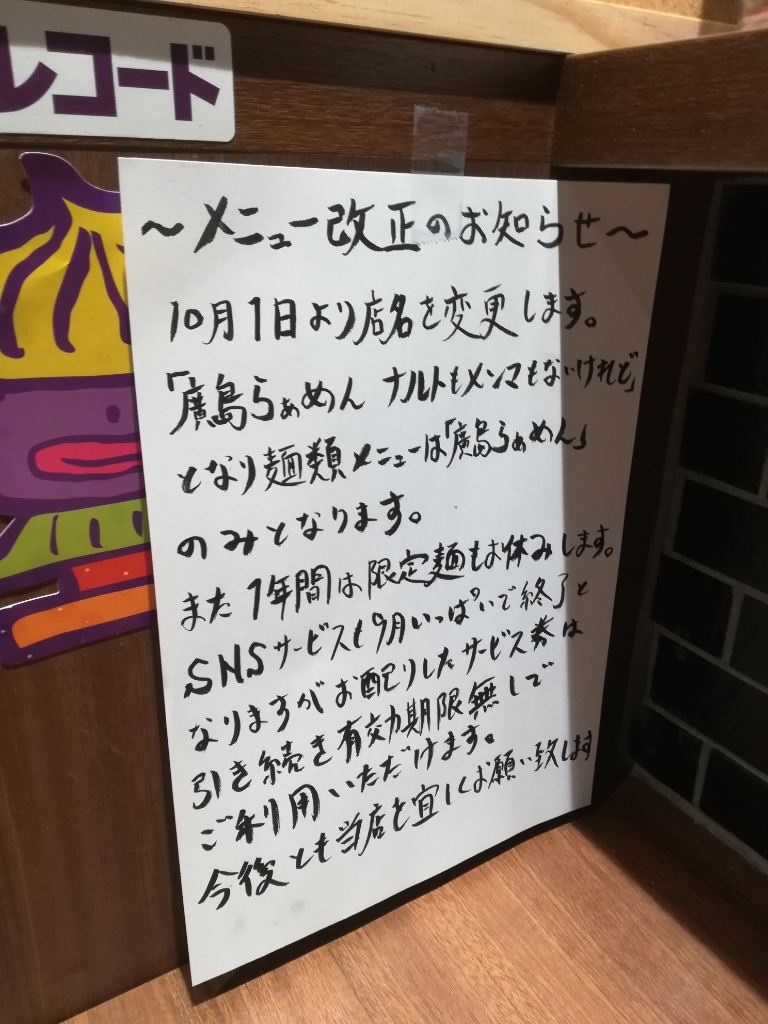 レコード
～メニュー改正のお知らせ～
10月1日より店名を変更します。
「廣島らぁめん ナルトもメンマもないけれど」
となり麺類メニューは「廣島らぁめん」
のみとなります。
また1年間は限定麺もお休みします。
SNSサービスも9月いっぱいで終了と
なりますがお配りしたサービス券は
引き続き有効期限無しで
ご利用いただけます。
今後とも当店を宜しくお願い致します